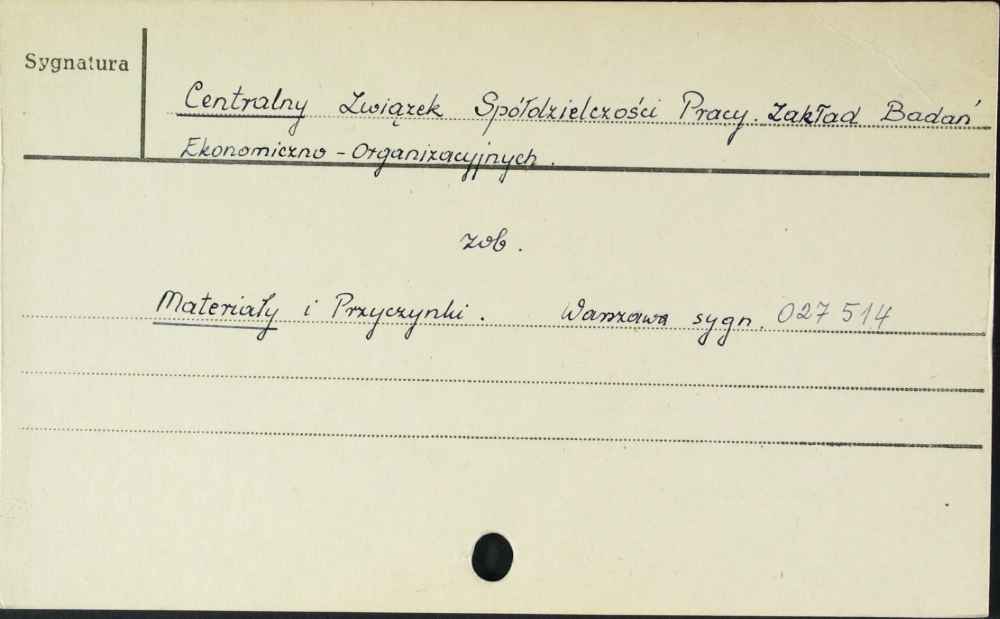 Sygnatura
Centralny Związek Spółdzielczości Pracy. Zakład Badań
Ekonomiczno - Organizacyjnych.
zob.
Materiały i Przyczynki. Warszawa sygn. 027 514